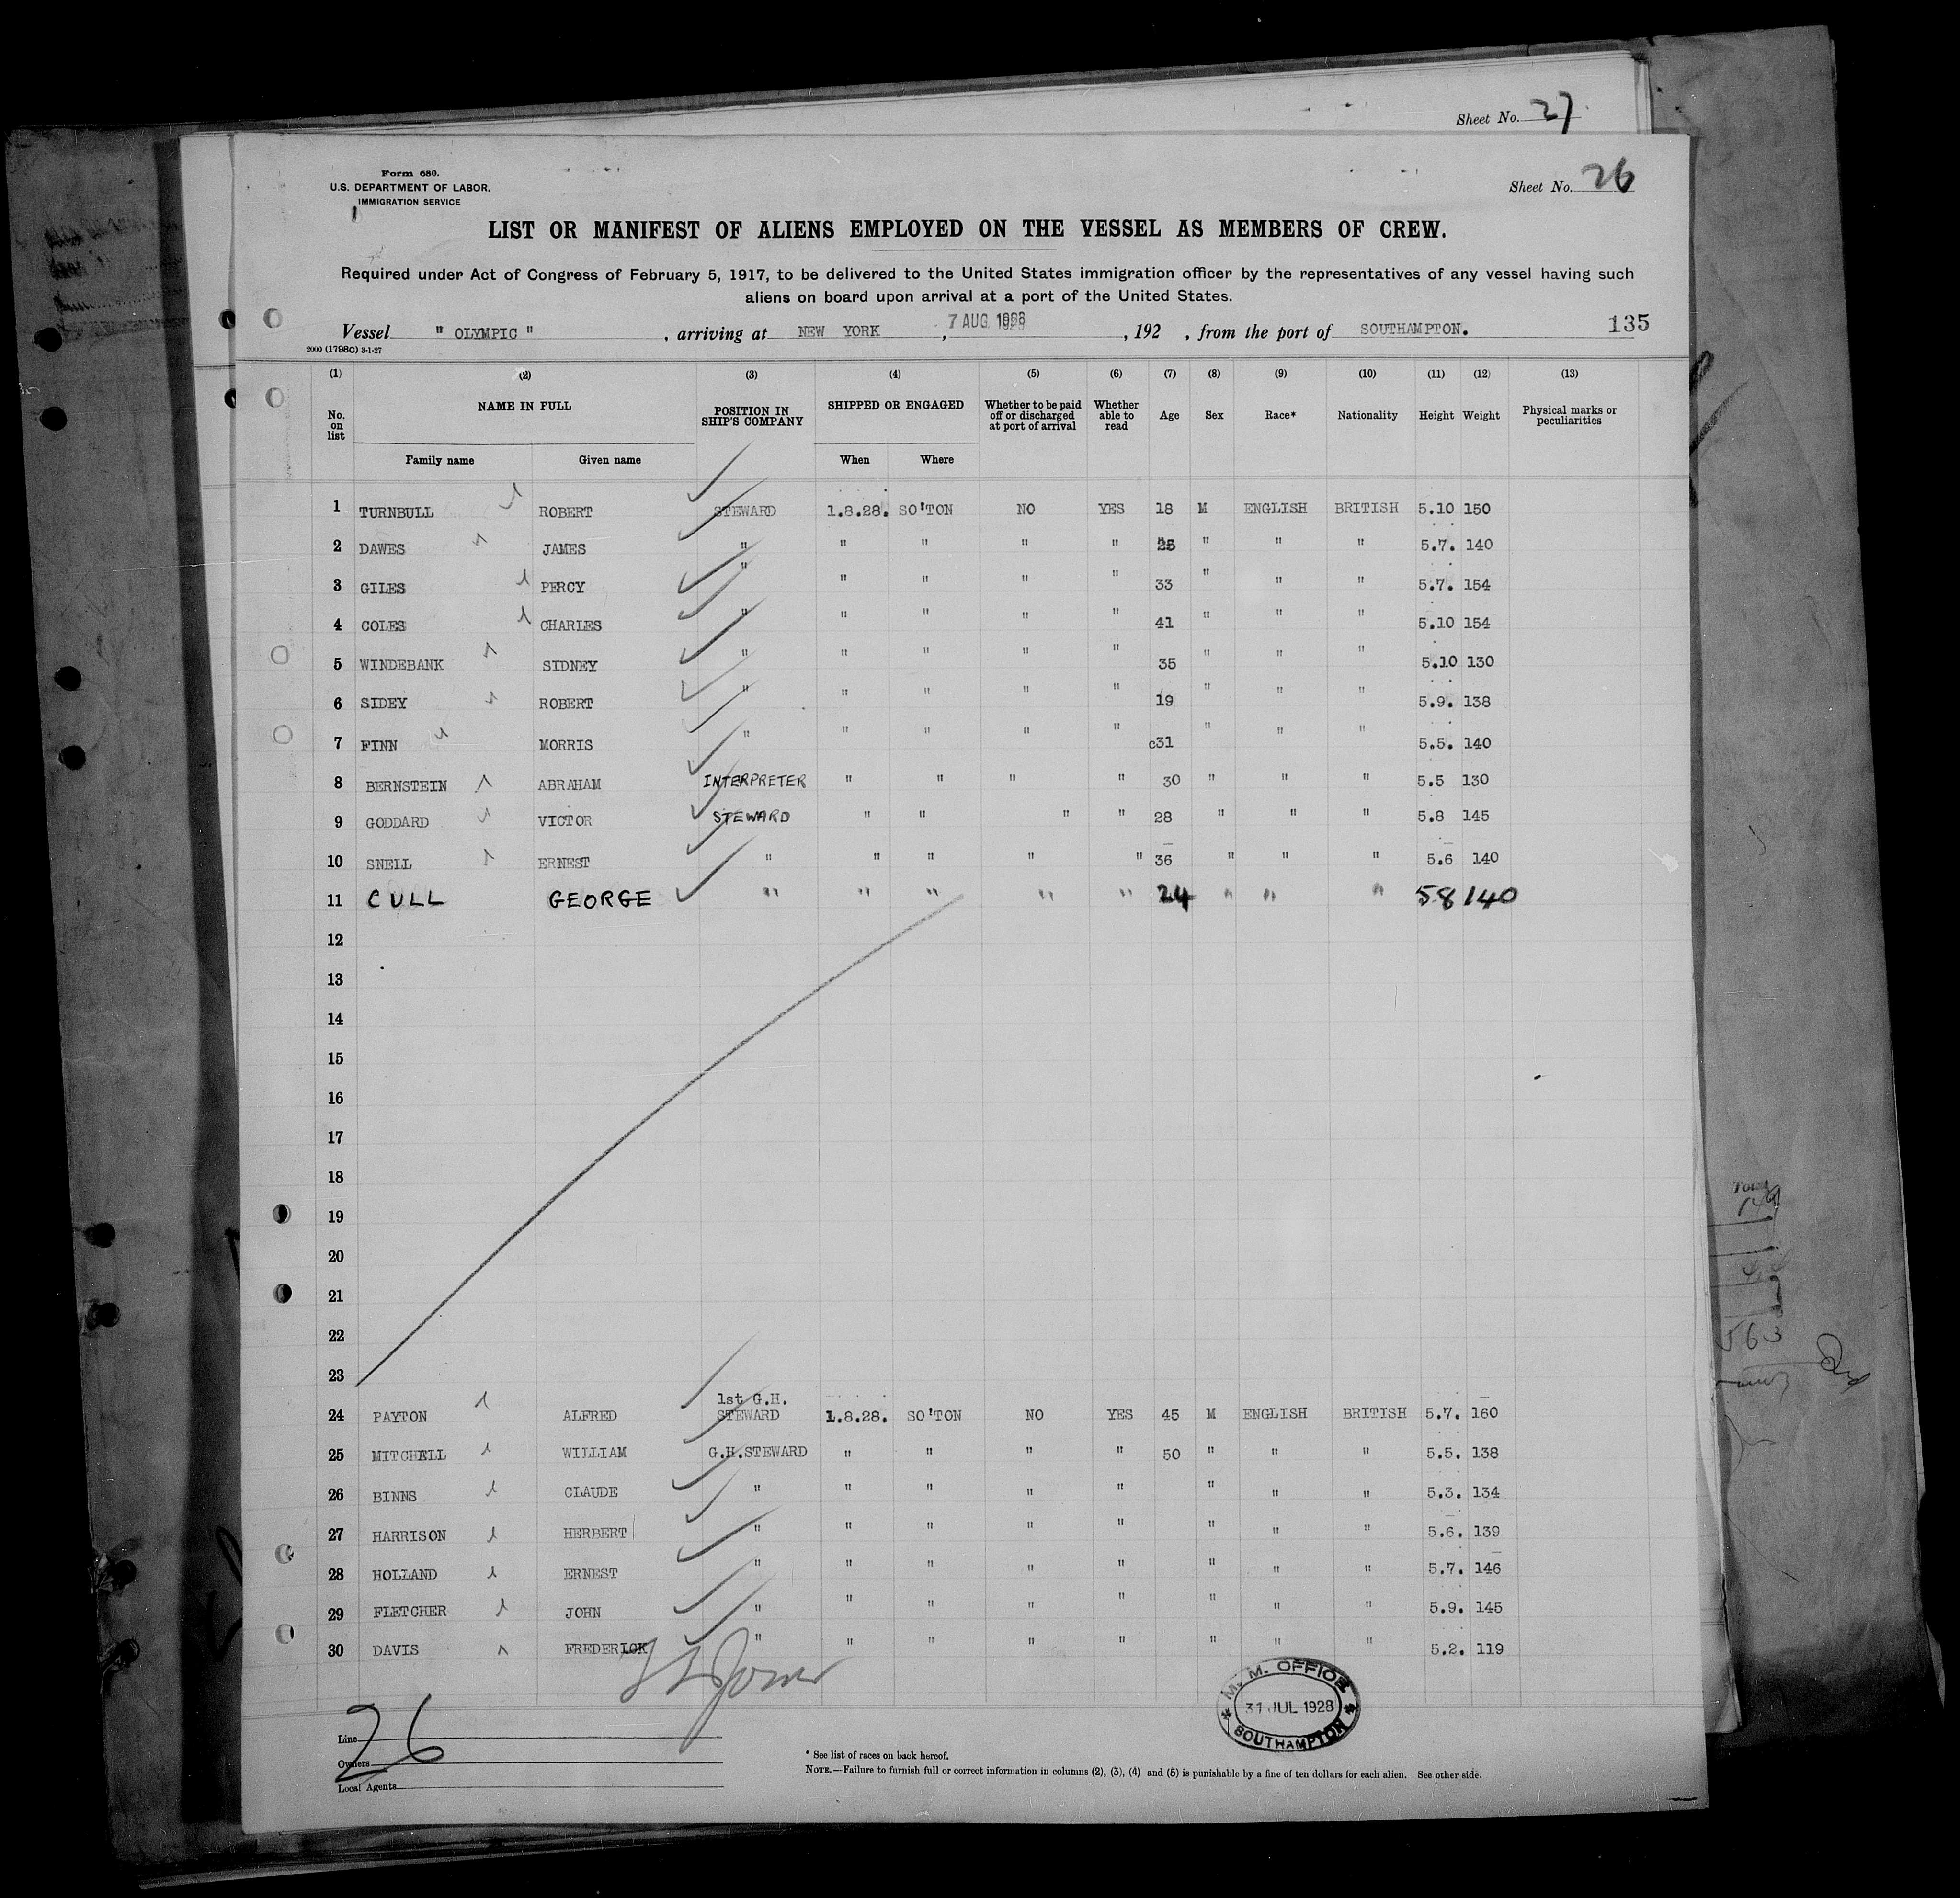 Sheet No. 27
Form 680.
U.S. DEPARTMENT OF LABOR.
IMMIGRATION SERVICE
Sheet No. 26
LIST OR MANIFEST OF ALIENS EMPLOYED ON THE VESSEL AS MEMBERS OF CREW.
Required under Act of Congress of February 5, 1917, to be delivered to the United States immigration officer by the representatives of any vessel having such
aliens on board upon arrival at a port of the United States.
Vessel " OLYMPIC " , arriving at NEW YORK , 7 AUG 1928 , 192 , from the port of SOUTHAMPTON. 135
2000 (1798C) 3-1-27
(1) (2) (3) (4) (5) (6) (7) (8) (9) (10) (11) (12) (13)
No. on list NAME IN FULL POSITION IN SHIP'S COMPANY SHIPPED OR ENGAGED Whether to be paid off or discharged at port of arrival Whether able to read Age Sex Race* Nationality Height Weight Physical marks or peculiarities
Family name Given name When Where
1 TURNBULL ROBERT STEWARD 1.8.28. SO'TON NO YES 18 M ENGLISH BRITISH 5.10 150
2 DAWES JAMES " " " " " 25 " " " 5.7. 140
3 GILES PERCY " " " " " 33 " " " 5.7. 154
4 COLES CHARLES " " " " " 41 " " " 5.10 154
5 WINDEBANK SIDNEY " " " " " 35 " " " 5.10 130
6 SIDEY ROBERT " " " " " 19 " " " 5.9. 138
7 FINN MORRIS " " " " " c31 " " " 5.5. 140
8 BERNSTEIN ABRAHAM INTERPRETER " " " " 30 " " " 5.5 130
9 GODDARD VICTOR STEWARD " " " " 28 " " " 5.8 145
10 SNELL ERNEST " " " " " 36 " " " 5.6 140
11 CULL GEORGE " " " " " 24 " " " 58 140
12
13
14
15
16
17
18
19
20
21
22
23
1st G.H.
24 PAYTON ALFRED STEWARD 1.8.28. SO'TON NO YES 45 M ENGLISH BRITISH 5.7. 160
25 MITCHELL WILLIAM G.H.STEWARD " " " " 50 " " " 5.5. 138
26 BINNS CLAUDE " " " " " " " " 5.3. 134
27 HARRISON HERBERT " " " " " " " " 5.6. 139
28 HOLLAND ERNEST " " " " " " " " 5.7. 146
29 FLETCHER JOHN " " " " " " " " 5.9. 145
30 DAVIS FREDERICK " " " " " " " " 5.2. 119
M.M. OFFICE
31 JUL 1928
SOUTHAMPTON
26
Line
Owners
Local Agents
* See list of races on back hereof.
NOTE.—Failure to furnish full or correct information in columns (2), (3), (4) and (5) is punishable by a fine of ten dollars for each alien. See other side.
Total
563